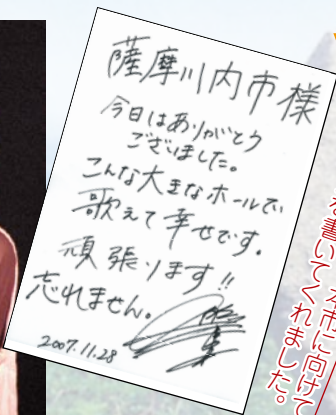 薩摩川内市様
今日はありがとう
ございました。
こんな大きなホールで
歌えて幸せです。
頑張ります!!
忘れません。
2007.11.28
本市に向けて
を書いてくれました。